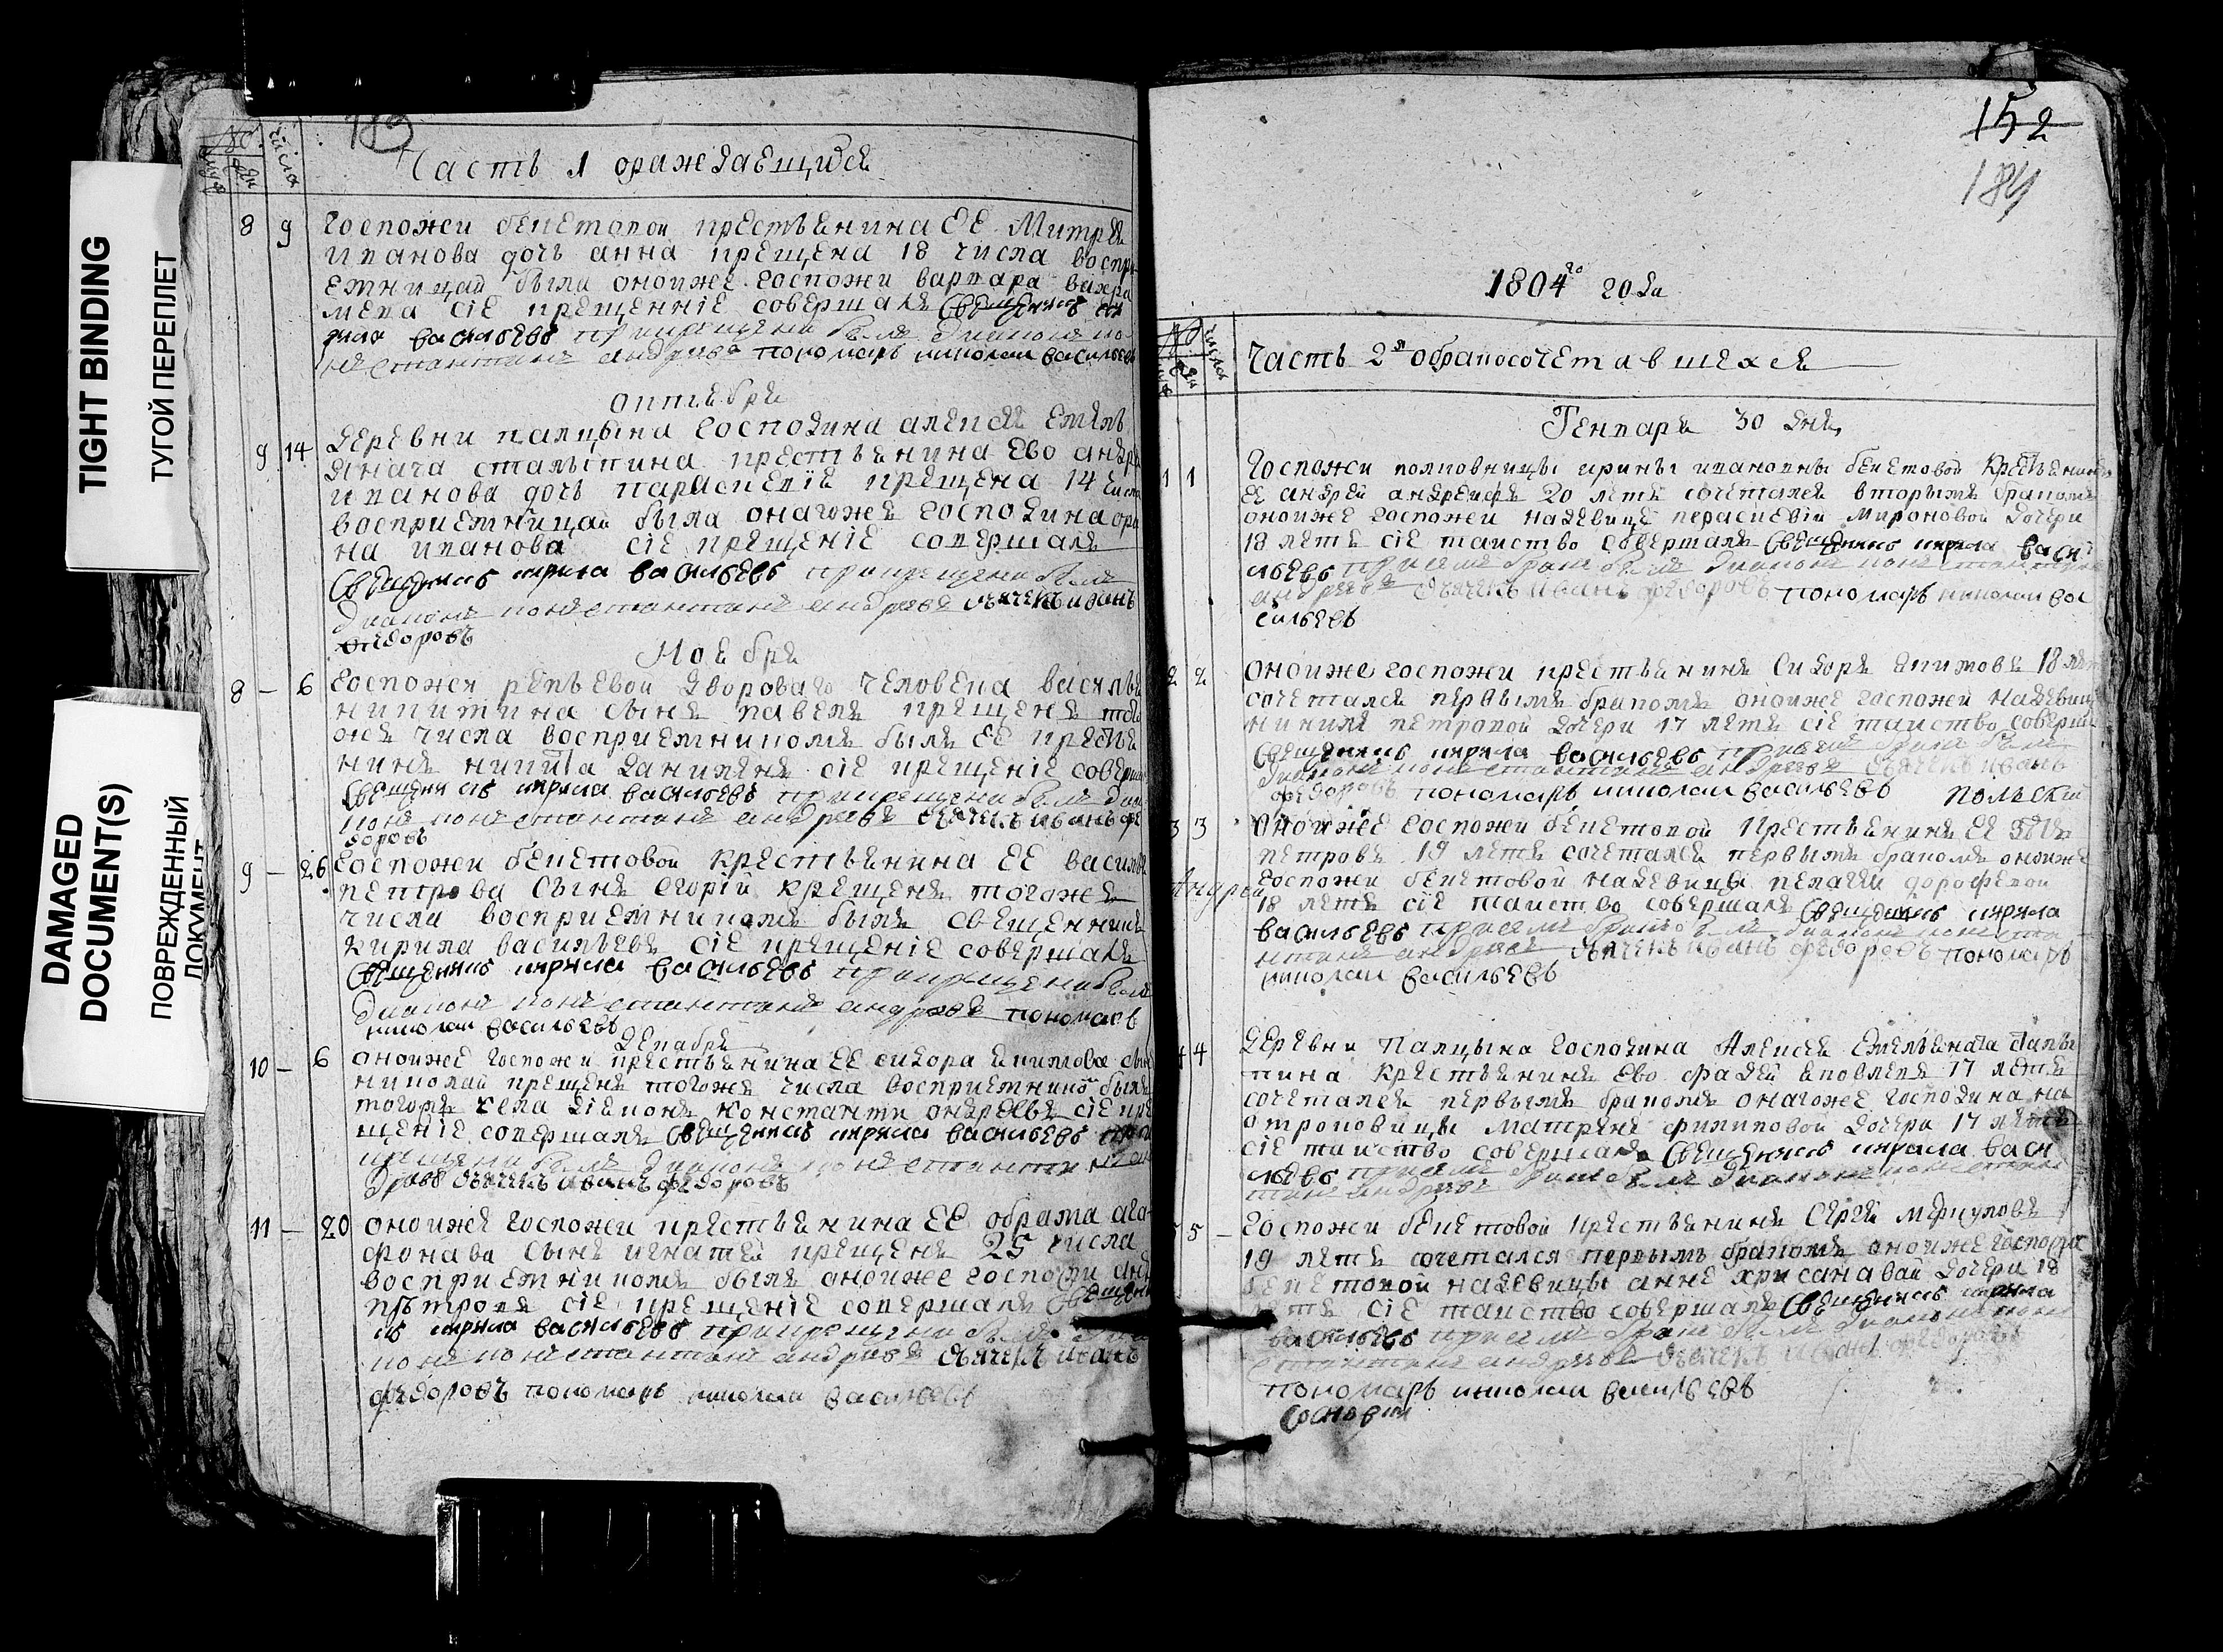 TIGHT BINDING
ТУГОЙ ПЕРЕПЛЕТ
DAMAGED
DOCUMENT(S)
ПОВРЕЖДЕННЫЙ
ДОКУМЕНТ
числа
Часть 1 ораждаещихся
8 9 госпожи бекетовой крестьянина ее Митрея
иванова дочь анна крещена 18 числа воспри
емницай была оной же госпожи варвара
сие крещение совершалъ священникъ
васильевъ при крещени былъ диаконъ ко
нстантинъ андреевъ пономарь николаи васильевъ
октября
9 14 деревни палцына господина алексея емель
янача сталыпина крестьянина ево андрея
иванова дочь параскевия крещена 14 числа
восприемницай была онагожъ господина
на иванова сие крещение совершалъ
Священникъ кирила васильевъ при крещени былъ
диаконъ константинъ андреевъ дьячекъ иванъ
федоровъ
Ноября
8 – 6 госпожи репьевой дворовага человека василья
никитина сынъ павелъ крещенъ того
жъ числа восприемникомъ былъ ее крестья
нинъ никита данилинъ сие крещение соверш
Священникъ кирила васильевъ при крещени былъ диа
конъ константинъ андреевъ дьячекъ иванъ фе
доровъ
9 – 26 госпожи бекетовой крестьянина ее василья
петрова сынъ егорий крещенъ тогожъ
числа восприемникомъ былъ священникъ
кирила васильевъ сие крещение совершалъ
Священникъ кирила васильевъ при крещени былъ
диаконъ константинъ андреевъ пономарь
николаи васильевъ
декабря
10 – 6 оной же госпожи крестьянина ее сидора екимова сынъ
николай крещенъ тогожъ числа восприемнико былъ
тогожъ села диаконъ константи андреевъ сие кре
щение совершалъ Священникъ кирила васильевъ при
крещени былъ диаконъ константинъ ан
древъ дьячекъ иванъ федоровъ
11 – 20 оной же госпожи крестьянина ее абрама ага
фонава сынъ игнатей крещенъ 25 числа
восприемникомъ былъ оной же госпожи
петровъ сие крещение совершалъ Священни
къ кирила васильевъ при крещени былъ диа
конъ константинъ андреевъ дьячекъ иванъ
федоровъ пономарь николаи васильевъ
152
184
1804го года
числа
Часть 2я обракосочетавшехся
Генваря 30 дня
1 1 Госпожи полковницы ирины ивановны бекетовой крестьянинъ
ее андрей андреевъ 20 летъ сочетался вторымъ бракомъ
оной же госпожи надевице параскевии мироновой дочери
18 летъ сие таиство совершалъ Священникъ кирила васи
льевъ при семъ браке былъ диаконъ константинъ
андреевъ дьячекъ иванъ федоровъ пономарь николаи ва
сильевъ
2 2 оной же госпожи крестьянинъ Сидоръ екимовъ 18 летъ
сочетался первымъ бракомъ оной же госпожи надевице
петровой дочери 17 летъ сие таиство соверши
Священникъ кирила васильевъ при семъ браке былъ
диаконъ константинъ андреевъ дьячекъ иванъ
федоровъ пономарь николаи васильевъ Польский
3 3 Оной же госпожи бекетовой крестьянинъ ее
петровъ 19 летъ сочетался первымъ бракомъ оной же
Андрей госпожи бекетовой надевицы пелагеи дорофевой
18 летъ сие таиство совершалъ Священникъ кирила
васильевъ при семъ браке былъ диаконъ конста
нтинъ андреевъ дьячекъ иванъ федоровъ пономарь
николаи васильевъ
4 4 деревни Палцына господина Алексея Емельянача Сталы
пина крестьянинъ ево фадей яковлевъ 17 летъ
сочетался первымъ бракомъ онагожъ господина на
отроковицы матрене филиповой дочери 17 летъ
сие таиство совершалъ Священникъ кирила васи
льевъ при семъ браке былъ диаконъ констан
тинъ андреевъ
5 5 Госпожи бекетовой крестьянинъ Сергей меркуловъ
19 летъ сочетался первымъ бракомъ оной же госпожи
бекетовой надевицы анне хрисанавай дочери 18
летъ сие таиство совершалъ Священникъ кирила
васильевъ при семъ браке былъ диаконъ кон
стантинъ андреевъ дьячекъ иванъ федоровъ
пономарь николаи васильевъ